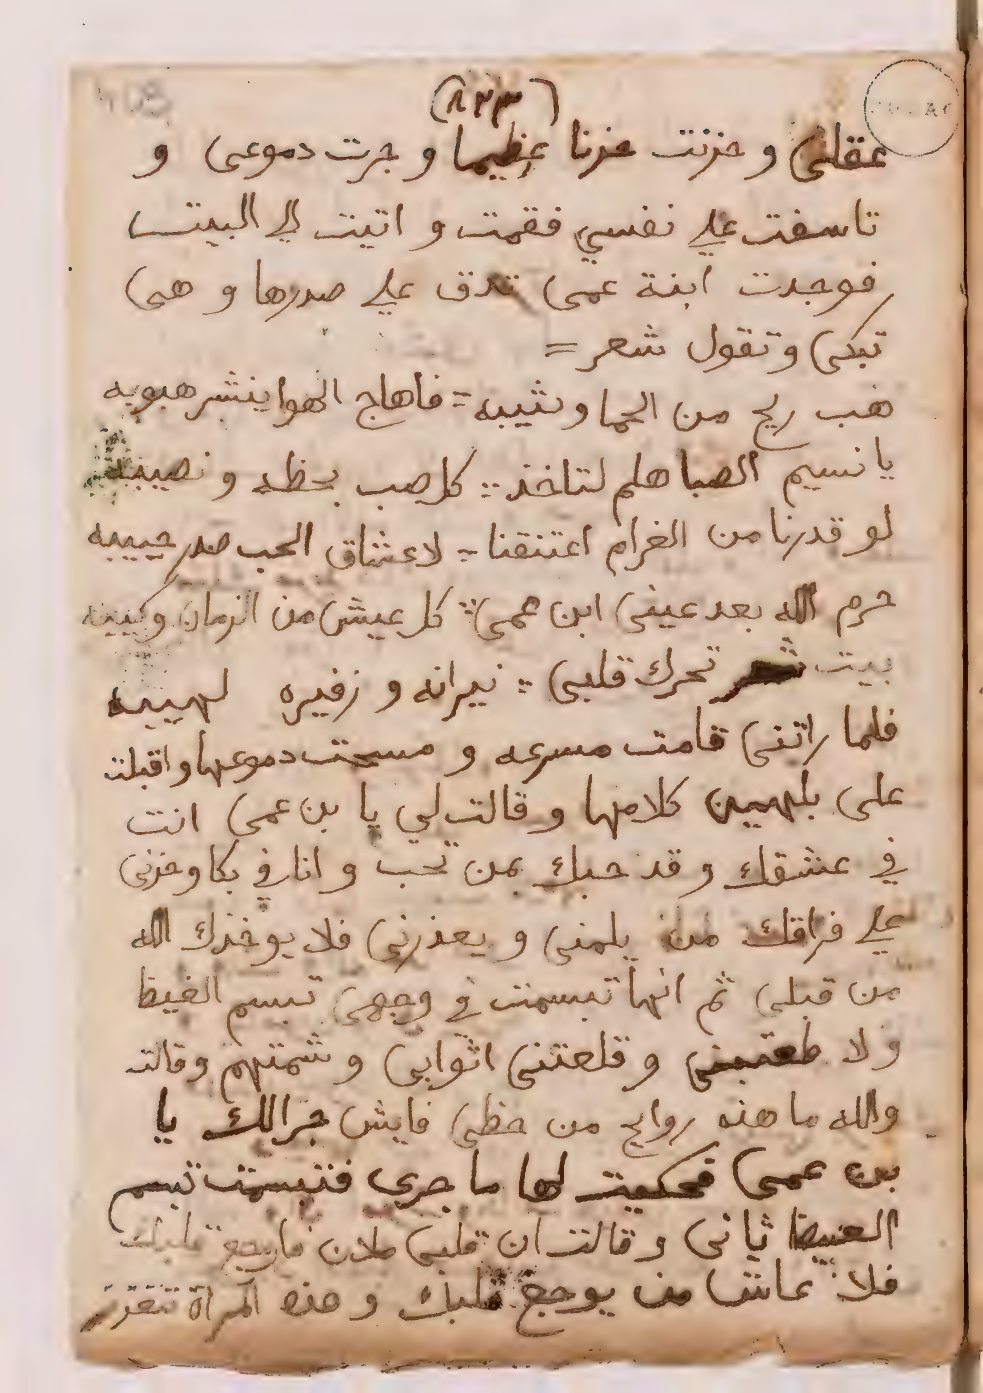 (٨٢٣)
عقلي و حزنت حزنا عظيما و جرت دموعي و
تاسفت علي نفسي فقمت و اتيت الي البيت
فوجدت ابنة عمي تدق علي صدرها و هي
تبكي و تقول شعر =
هب ريح من الحما و نثيبه = فاهاج الهوا ينشر هبوبه
يا نسيم الصبا هلم لتاخذ = كل صب بحظه و نصيبه
لو قدرنا من الغرام اعتنقنا = لاعتناق الحب صدر حبيبه
حرم الله بعد عيني ابن عمي = كل عيش من الزمان وكييه
بيت شعر تحرك قلبي = نيرانه و زفيره لهيبه
فلما راتني قامت مسرعه و مسحت دموعها و اقبلت
علي بلهين كلامها و قالت لي يا بن عمي انت
في عشقك و قد حبك بمن تحب و انا في بكا وحزني
علي فراقك من يلمني و يعذرني فلا يوخذك الله
من قبلي ثم انها تبسمت في وجهي تبسم الغيظ
و لا طعتبني و قلعتني اثوابي و شمتهم وقالت
والله ما هذه روايح من حظي فايش جرالك يا
بن عمي فحكيت لها ما جري فتبسمت تبسم
الغيظ ثاني و قالت ان قلبي ملان فاوجع قلبك
فلا عاش من يوجع قلبك و هذه المراة تتعزز